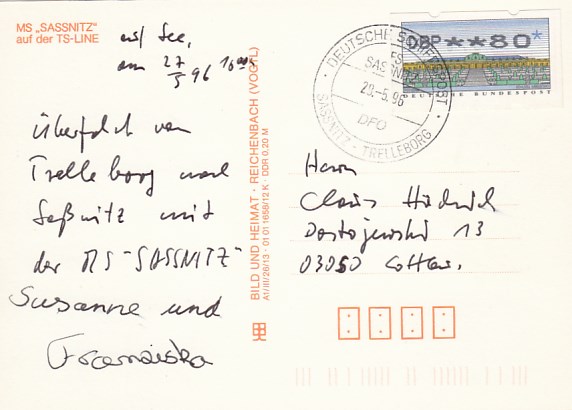 MS „SASSNITZ"
auf der TS-LINE
auf See,
am 27/5 96
Überfahrt von
Trelleborg nach
Saßnitz mit
der MS "SASSNITZ"
Susanne und
Franziska
BILD UND HEIMAT · REICHENBACH (VOGTL)
A1/III/26/13 · 01 01 1658/12 K · DDR 0,20 M
DEUTSCHE SCHIFFSPOST
SASSNITZ
29.-5.96
DFO
SASSNITZ - TRELLEBORG
DBP **80*
DEUTSCHE BUNDESPOST
Herrn
Claus
Dostojewski 13
03050 Cottbus.